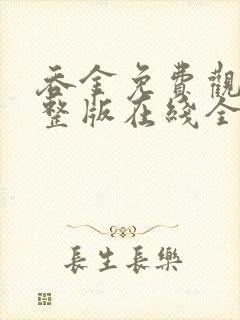 吞金免費觀
整版在綫全
長生長樂